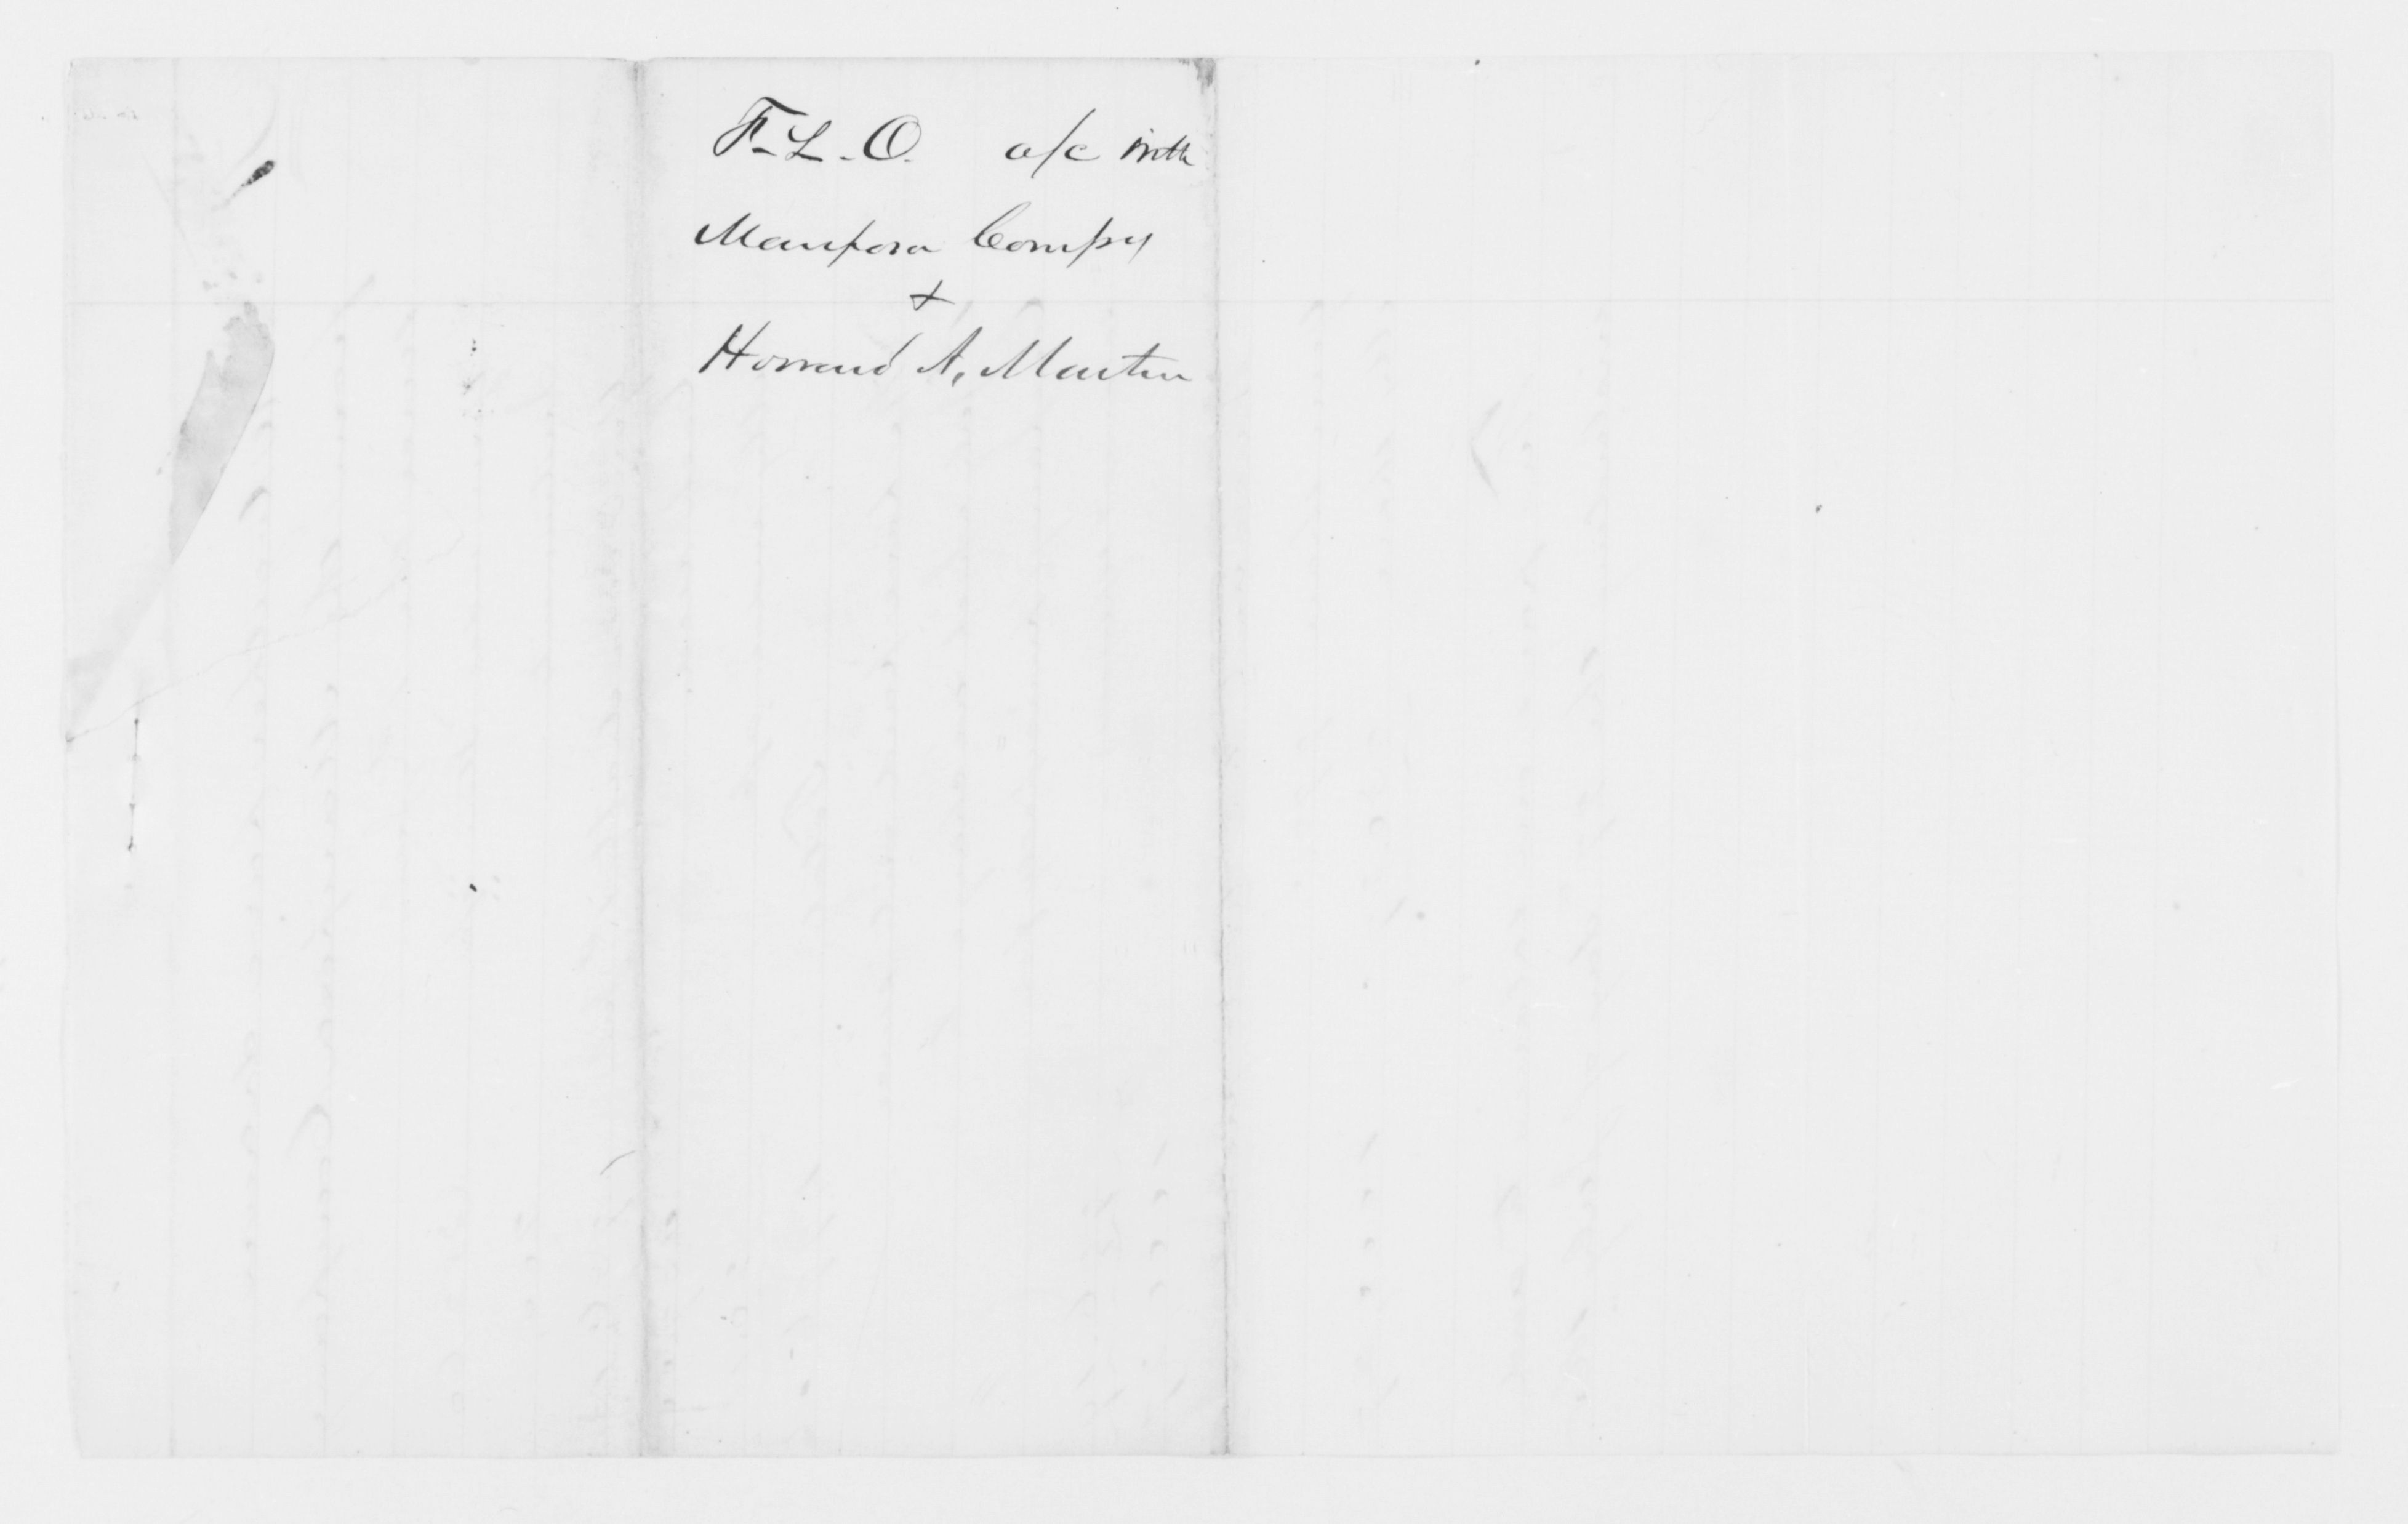 F. L. O. a/c with
Mariposa Compy
&
Howard A. Martin